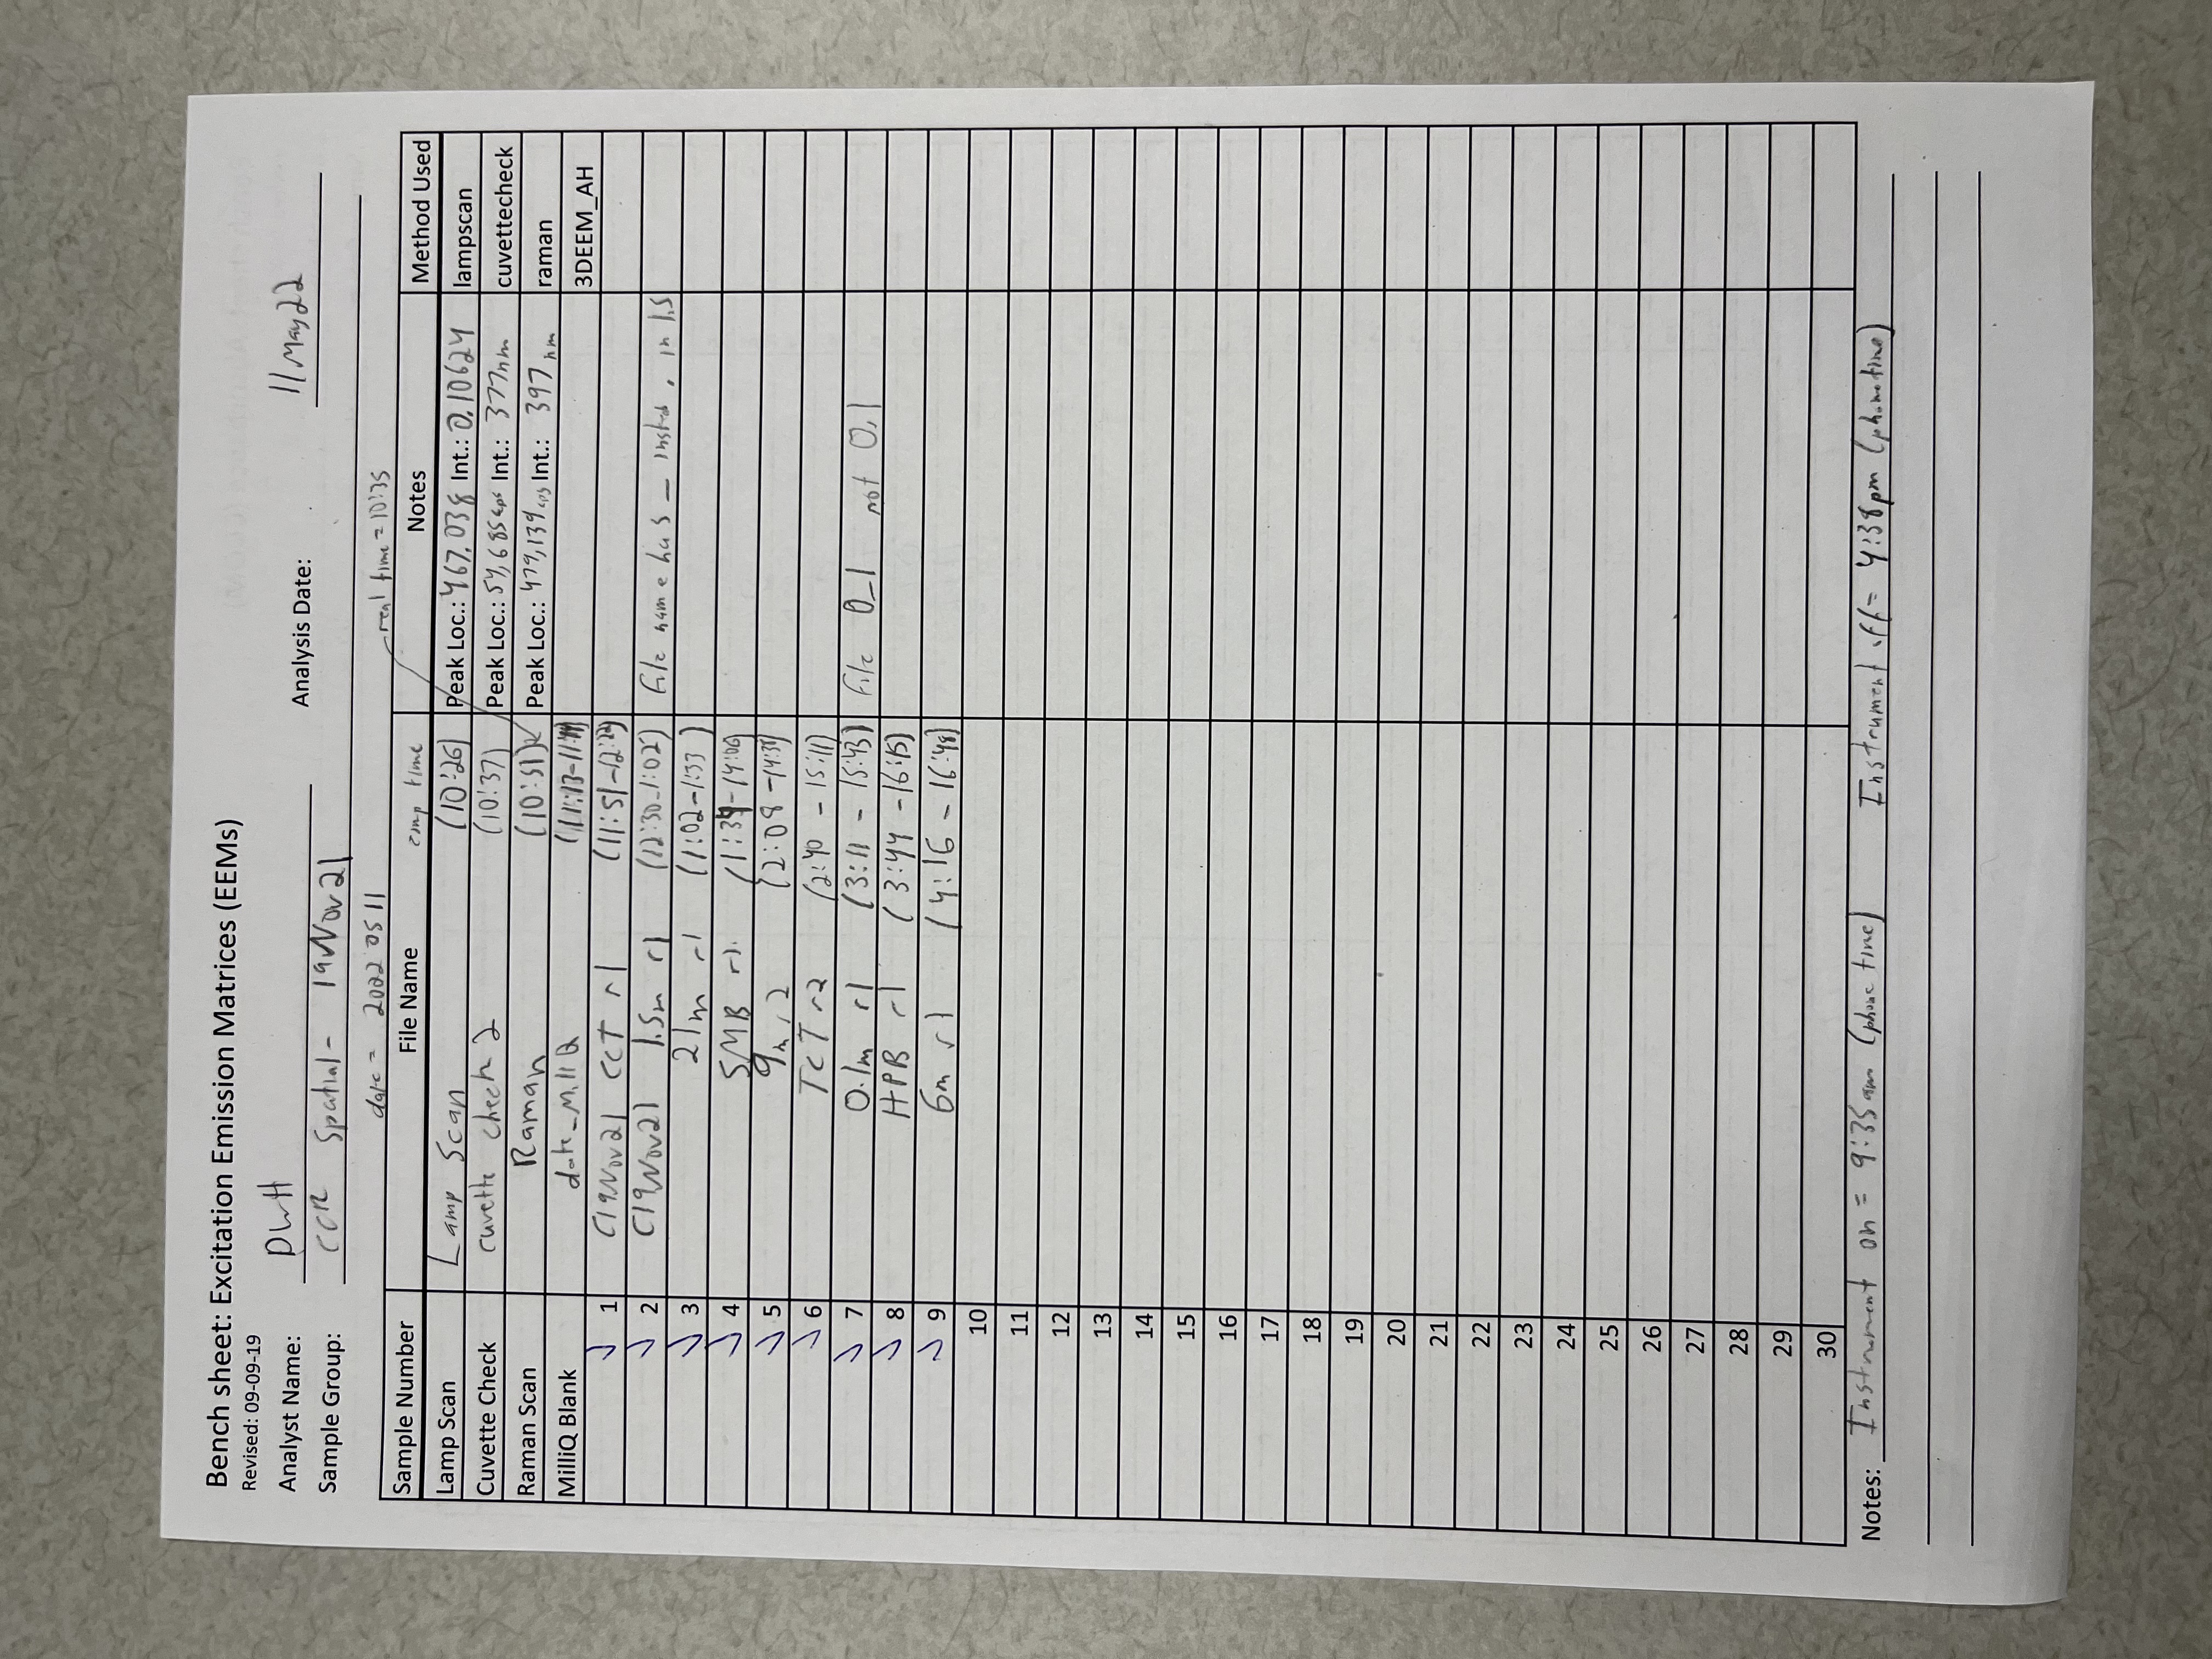 Bench sheet: Excitation Emission Matrices (EEMs)
Revised: 09-09-19
Analyst Name: DWH Analysis Date: 11May22
Sample Group: CCR Spatial - 19Nov21
date = 20220511 real time = 10:35
Sample Number File Name comp time Notes Method Used
Lamp Scan Lamp Scan (10:26) Peak Loc.: 467.038 Int.: 0.10624 lampscan
Cuvette Check cuvette check 2 (10:37) Peak Loc.: 54,685cps Int.: 377nm cuvettecheck
Raman Scan Raman (10:51) Peak Loc.: 479,139cps Int.: 397nm raman
MilliQ Blank date_MilliQ 3DEEM_AH
✓ 1 C19Nov21 CCT r1 (11:51-12:22)
✓ 2 C19Nov21 1.5m r1 (12:30-1:02) File name has _ insted . in 1.5
✓ 3 21m r1 (1:02-1:33)
✓ 4 SMB r1 (1:34-14:06)
✓ 5 9m r2 (2:08-14:38)
✓ 6 TCT r2 (2:40-15:11)
✓ 7 0.1m r1 (3:11-15:43) File 0_1 not 0.1
✓ 8 HPB r1 (3:44-16:15)
✓ 9 6m r1 (4:16-16:48)
10
11
12
13
14
15
16
17
18
19
20
21
22
23
24
25
26
27
28
29
30
Notes: Instrument on = 9:35am (phone time) Instrument off = 4:38pm (phone time)